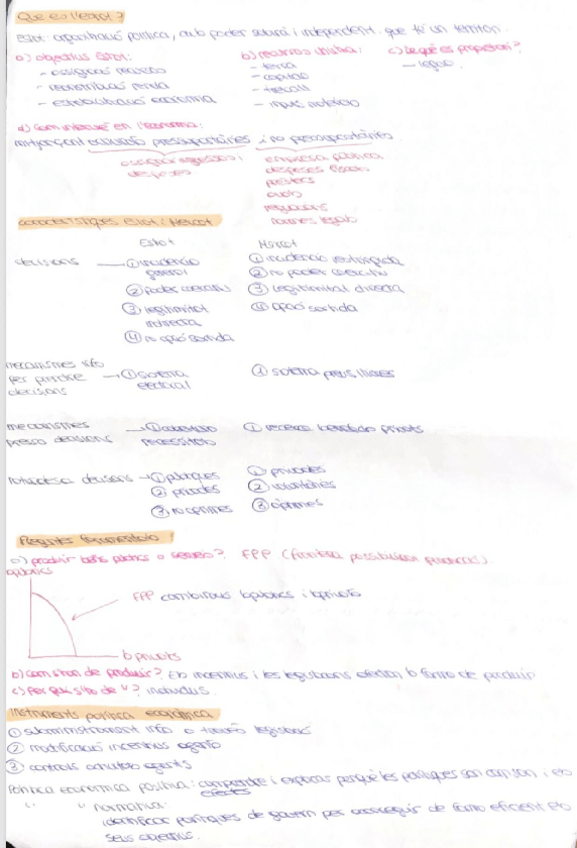 Que es l'estat?
Estat: organització política, amb poder sobirà i independent, que té un territori.
a) objectius Estat: b) recursos utilitza: c) de què és propietari?
- assignació recursos - terra - legals.
- redistribució renda - capital
- estabilització economia - treball
- inputs
d) Com intervé en l'economia:
mitjançant actuació pressupostàries i no pressupostàries
ingressos i empresa pública
despeses despeses fiscals
avals
regulacions
normes legals
característiques Estat i Mercat
Estat Mercat
decisions → ① incidència general ① incidència restringida
② poder coercitiu ② no poder coercitiu
③ legitimitat indirecta ③ legitimitat directa
④ no opció sortida ④ opció sortida
mecanismes info per prendre decisions → ① sistema electoral ① sistema preus lliures
mecanismes presa decisions → ① necessitats ① recerca beneficis privats
naturalesa decisions → ① públiques ① privades
② privades ② voluntàries
③ no òptimes ③ òptimes
Preguntes fonamentals
a) produir béns públics o privats? FPP (frontera possibilitats producció)
b públics
FPP combinacions b públics i b privats
b privats
b) Com s'han de produir? Els incentius i les legislacions afecten la forma de produir
c) Per qui s'ha de "? individus.
Instruments política econòmica
① subministrament info a través legislació
② modificació incentius agents
③ controls conducta agents
Política econòmica positiva: comprendre i explicar perquè les polítiques són com són i els efectes
" " normativa:
identificar polítiques de govern per aconseguir de forma eficient els seus objectius.